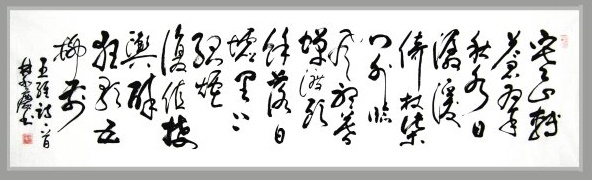 寒山轉
蒼翠
秋水日
潺湲
倚杖柴
門外臨
風聽暮
蟬渡頭
餘落日
墟里上
孤煙
復值接
輿醉
狂歌五
柳前
王維詩一首